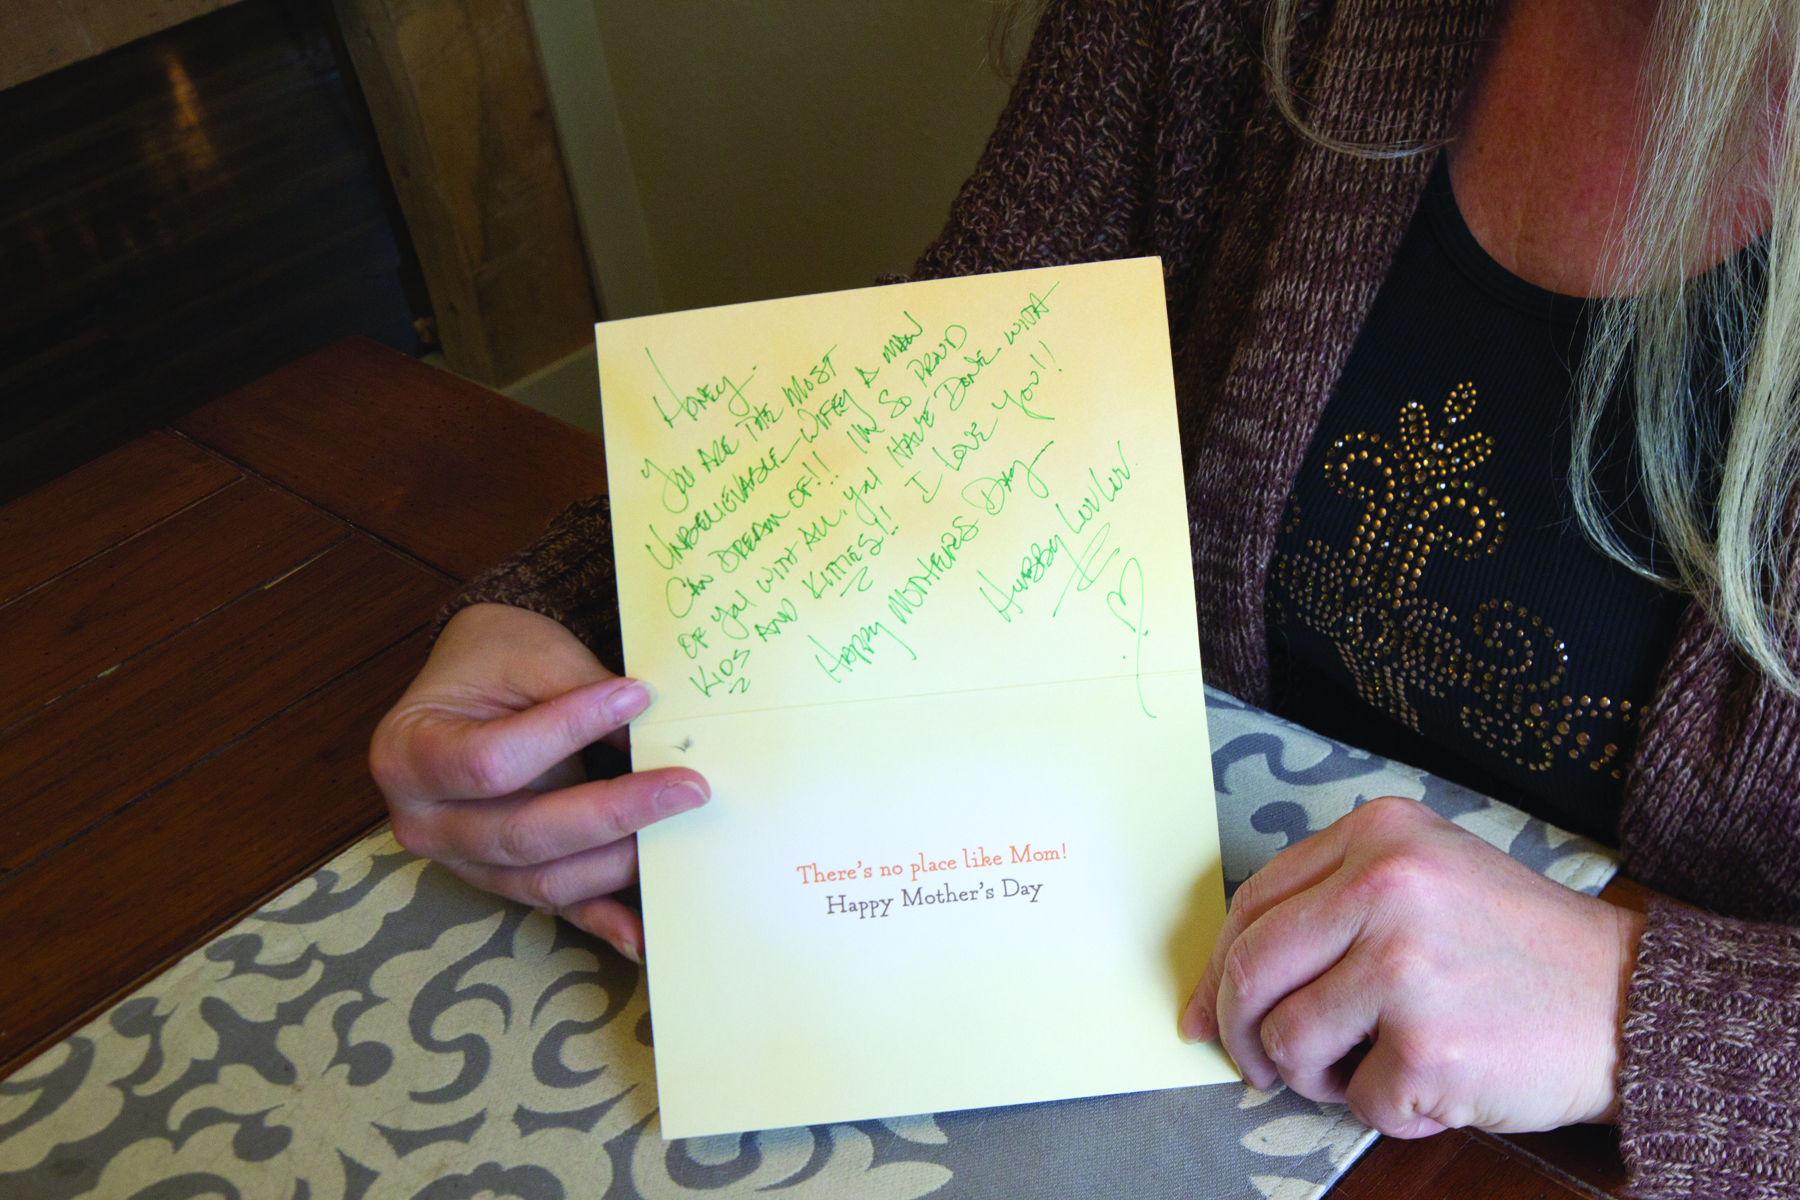 Honey.
You are the most
unbelievable wifey a man
can dream of!!! I'm so proud
of you with all you have done with
kids and kitties!! I love you!!
Happy Mothers Day
Hubby Luv Luv.
There's no place like Mom!
Happy Mother's Day